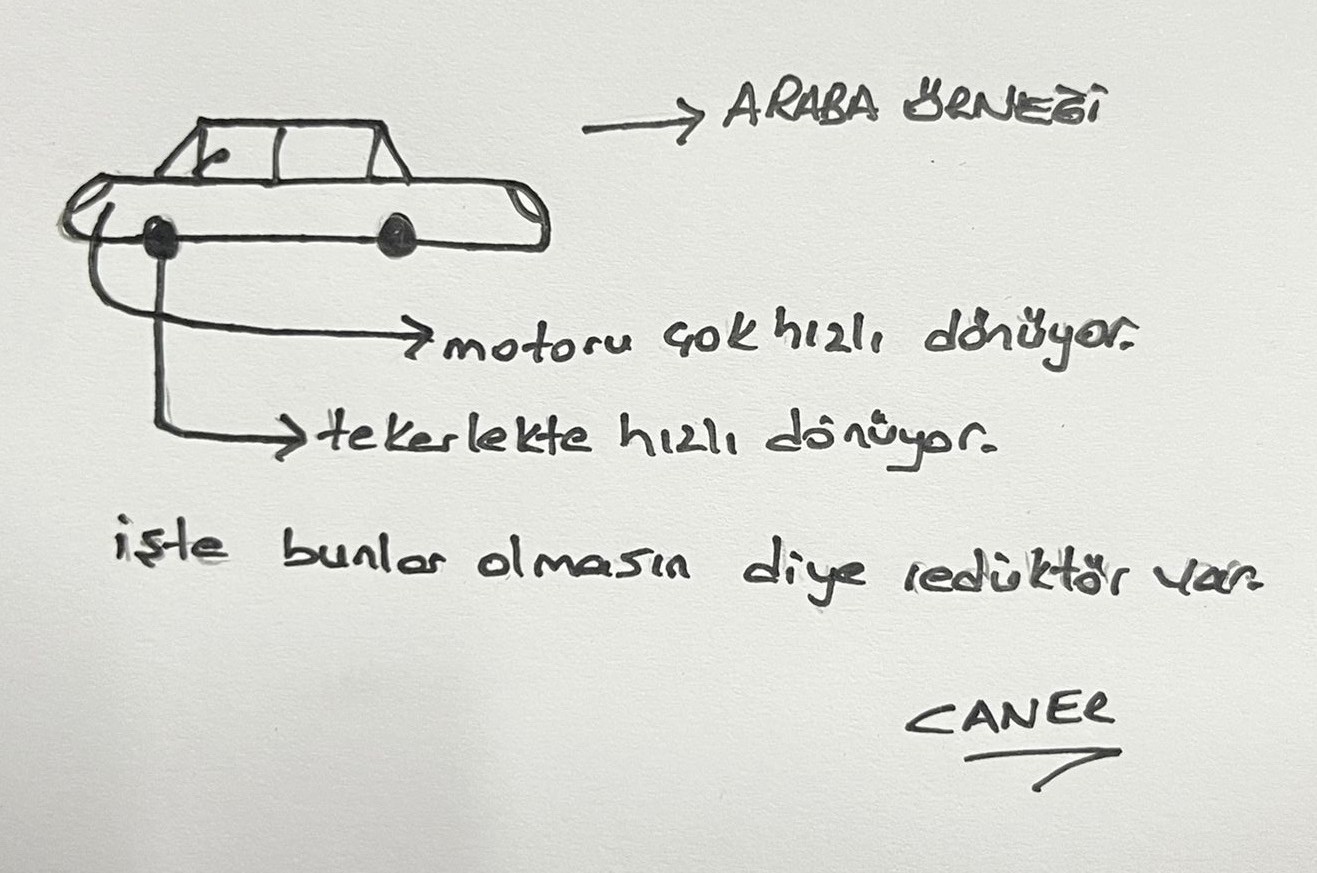 ARABA ÖRNEĞİ
motoru çok hızlı dönüyor.
tekerlekte hızlı dönüyor.
işte bunlar olmasın diye redüktör var.
CANER